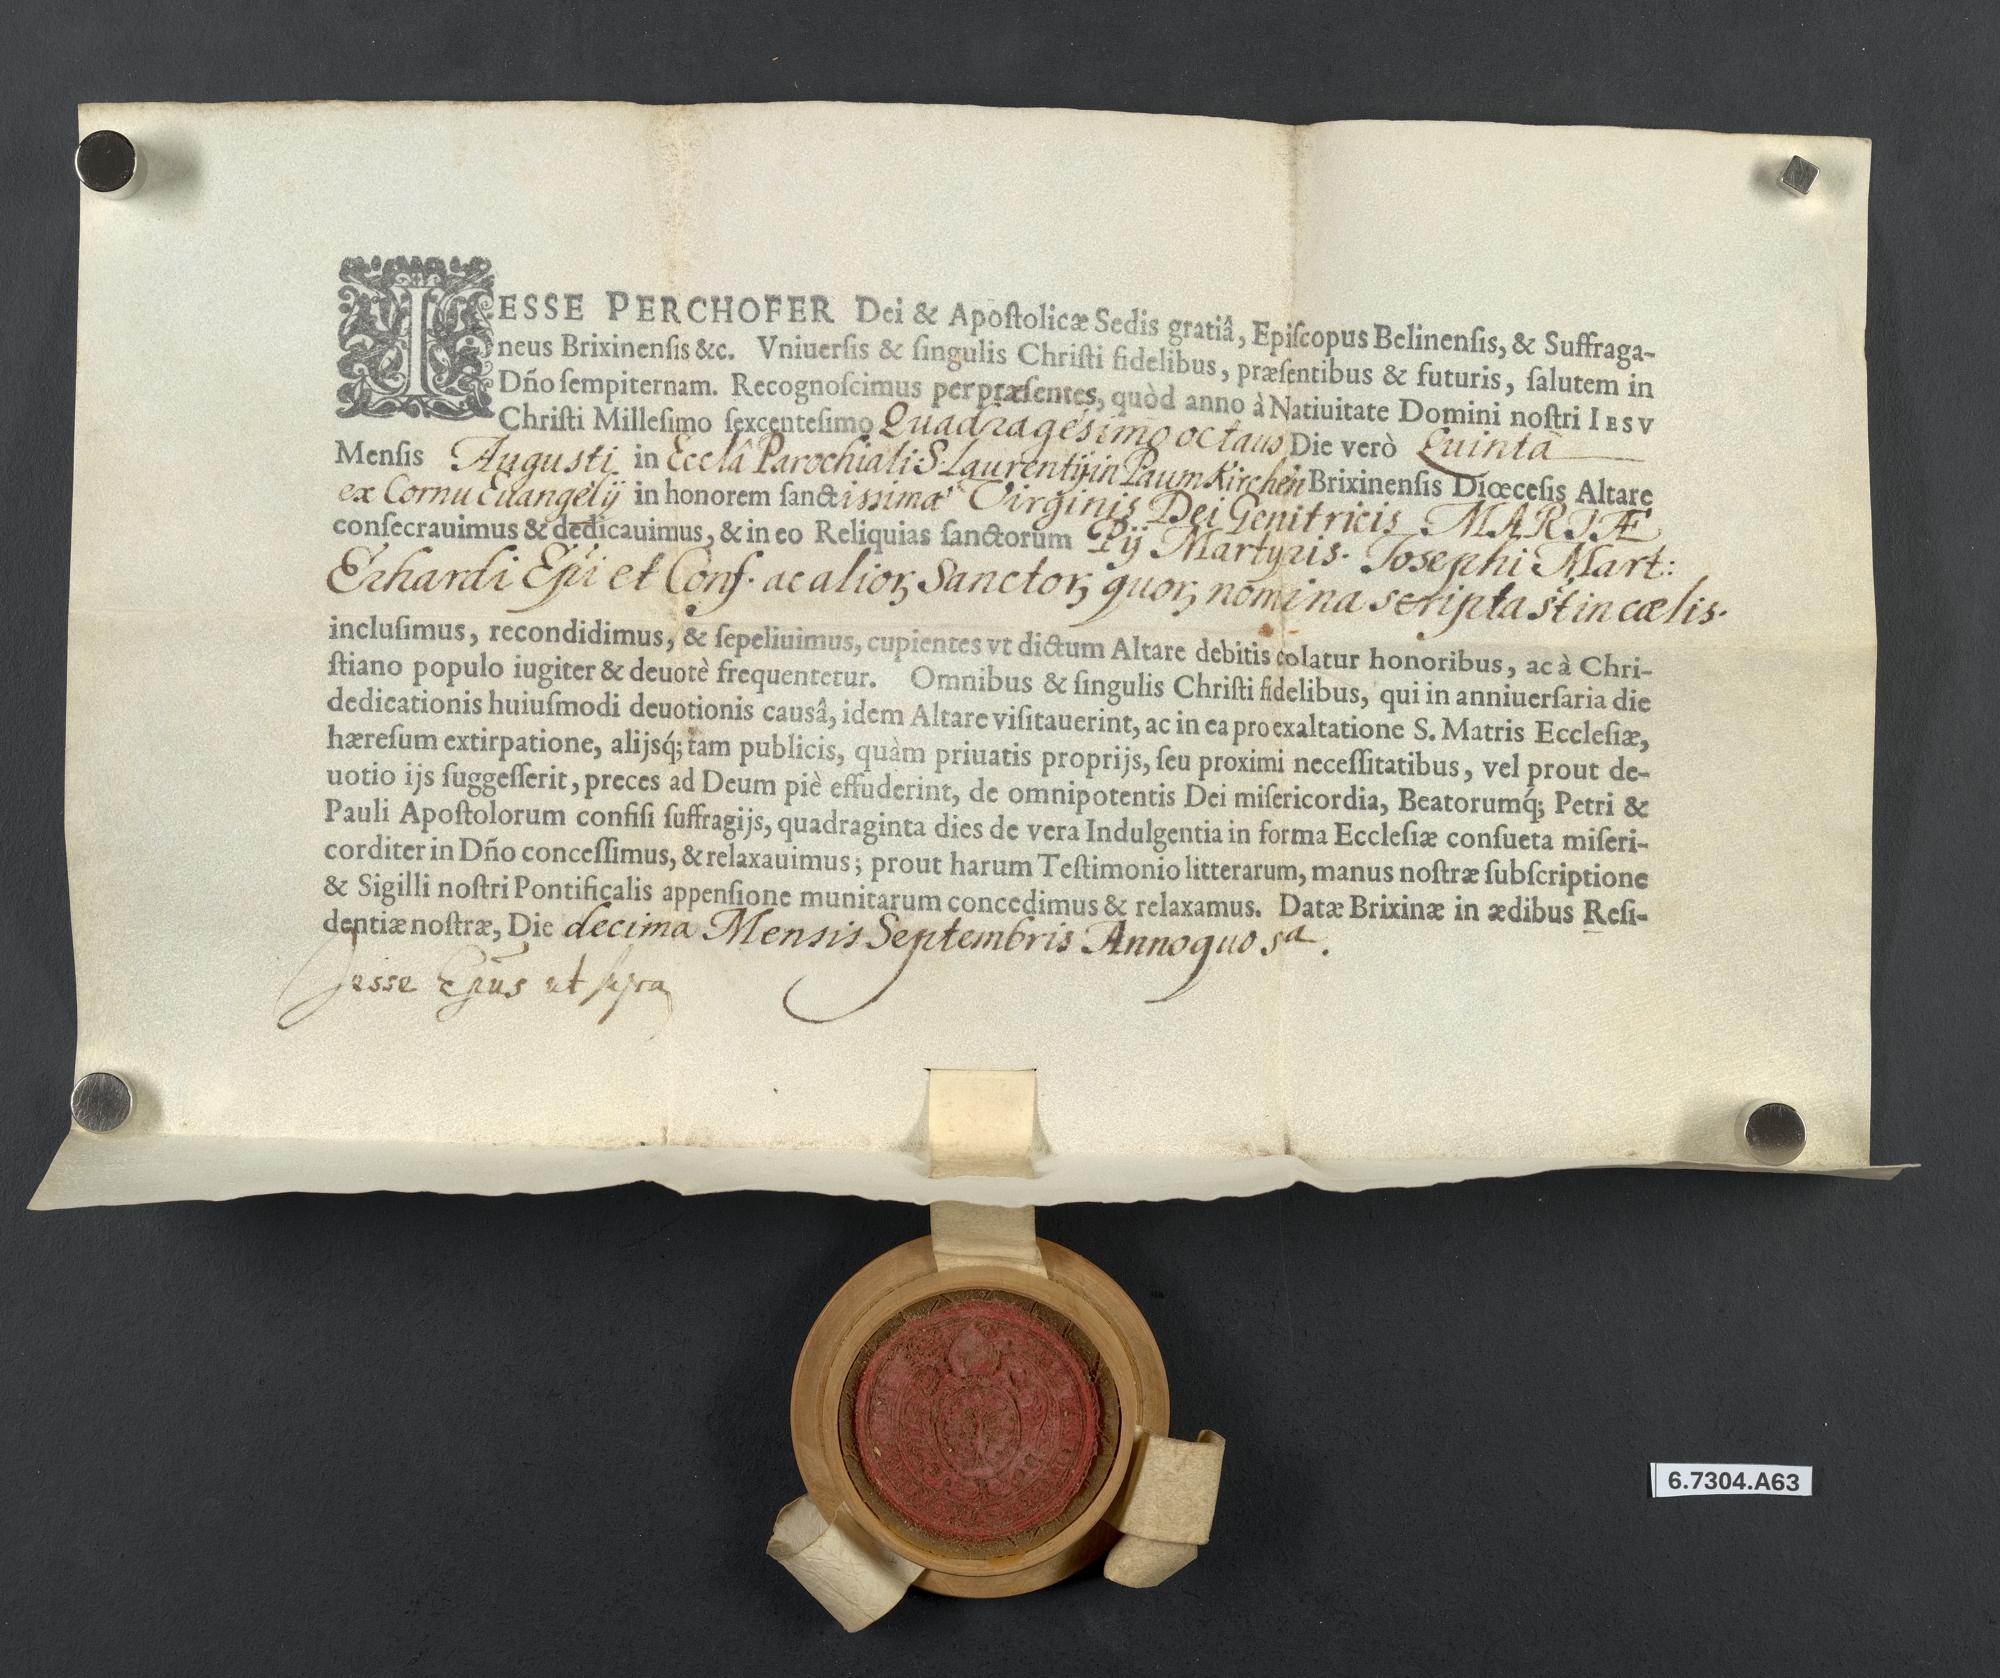 IESSE PERCHOFER Dei & Apostolicæ Sedis gratiâ, Episcopus Belinensis, & Suffraga-
neus Brixinensis &c. Vniuersis & singulis Christi fidelibus, præsentibus & futuris, salutem in
Dño sempiternam. Recognoscimus per præsentes, quòd anno à Natiuitate Domini nostri IESV
Christi Millesimo sexcentesimo Quadragesimo octauo Die verò Quinta
Mensis Augusti in Ecclâ Parochiali S. Laurentij in Paumkirchen Brixinensis Diœcesis Altare
ex Cornu Euangelij in honorem sanctissimæ Virginis Dei Genitricis MARIÆ
consecrauimus & dedicauimus, & in eo Reliquias sanctorum Pij Martyris. Josephi Mart:
Erhardi Epi et Conf. ac alioꝝ Sanctoꝝ quoꝝ nomina scripta st in cælis.
inclusimus, recondidimus, & sepeliuimus, cupientes vt dictum Altare debitis colatur honoribus, ac à Chri-
stiano populo iugiter & deuotè frequentetur. Omnibus & singulis Christi fidelibus, qui in anniuersaria die
dedicationis huiusmodi deuotionis causâ, idem Altare visitauerint, ac in ea pro exaltatione S. Matris Ecclesiæ,
hæresum extirpatione, alijsq́; tam publicis, quàm priuatis proprijs, seu proximi necessitatibus, vel prout de-
uotio ijs suggesserit, preces ad Deum piè effuderint, de omnipotentis Dei misericordia, Beatorumq́; Petri &
Pauli Apostolorum confisi suffragijs, quadraginta dies de vera Indulgentia in forma Ecclesiæ consueta miseri-
corditer in Dño concessimus, & relaxauimus; prout harum Testimonio litterarum, manus nostræ subscriptione
& Sigilli nostri Pontificalis appensione munitarum concedimus & relaxamus. Datæ Brixinæ in ædibus Resi-
dentiæ nostræ, Die decima Mensis Septembris Anno quo sa.
Jesse Epus ut supra
6.7304.A63